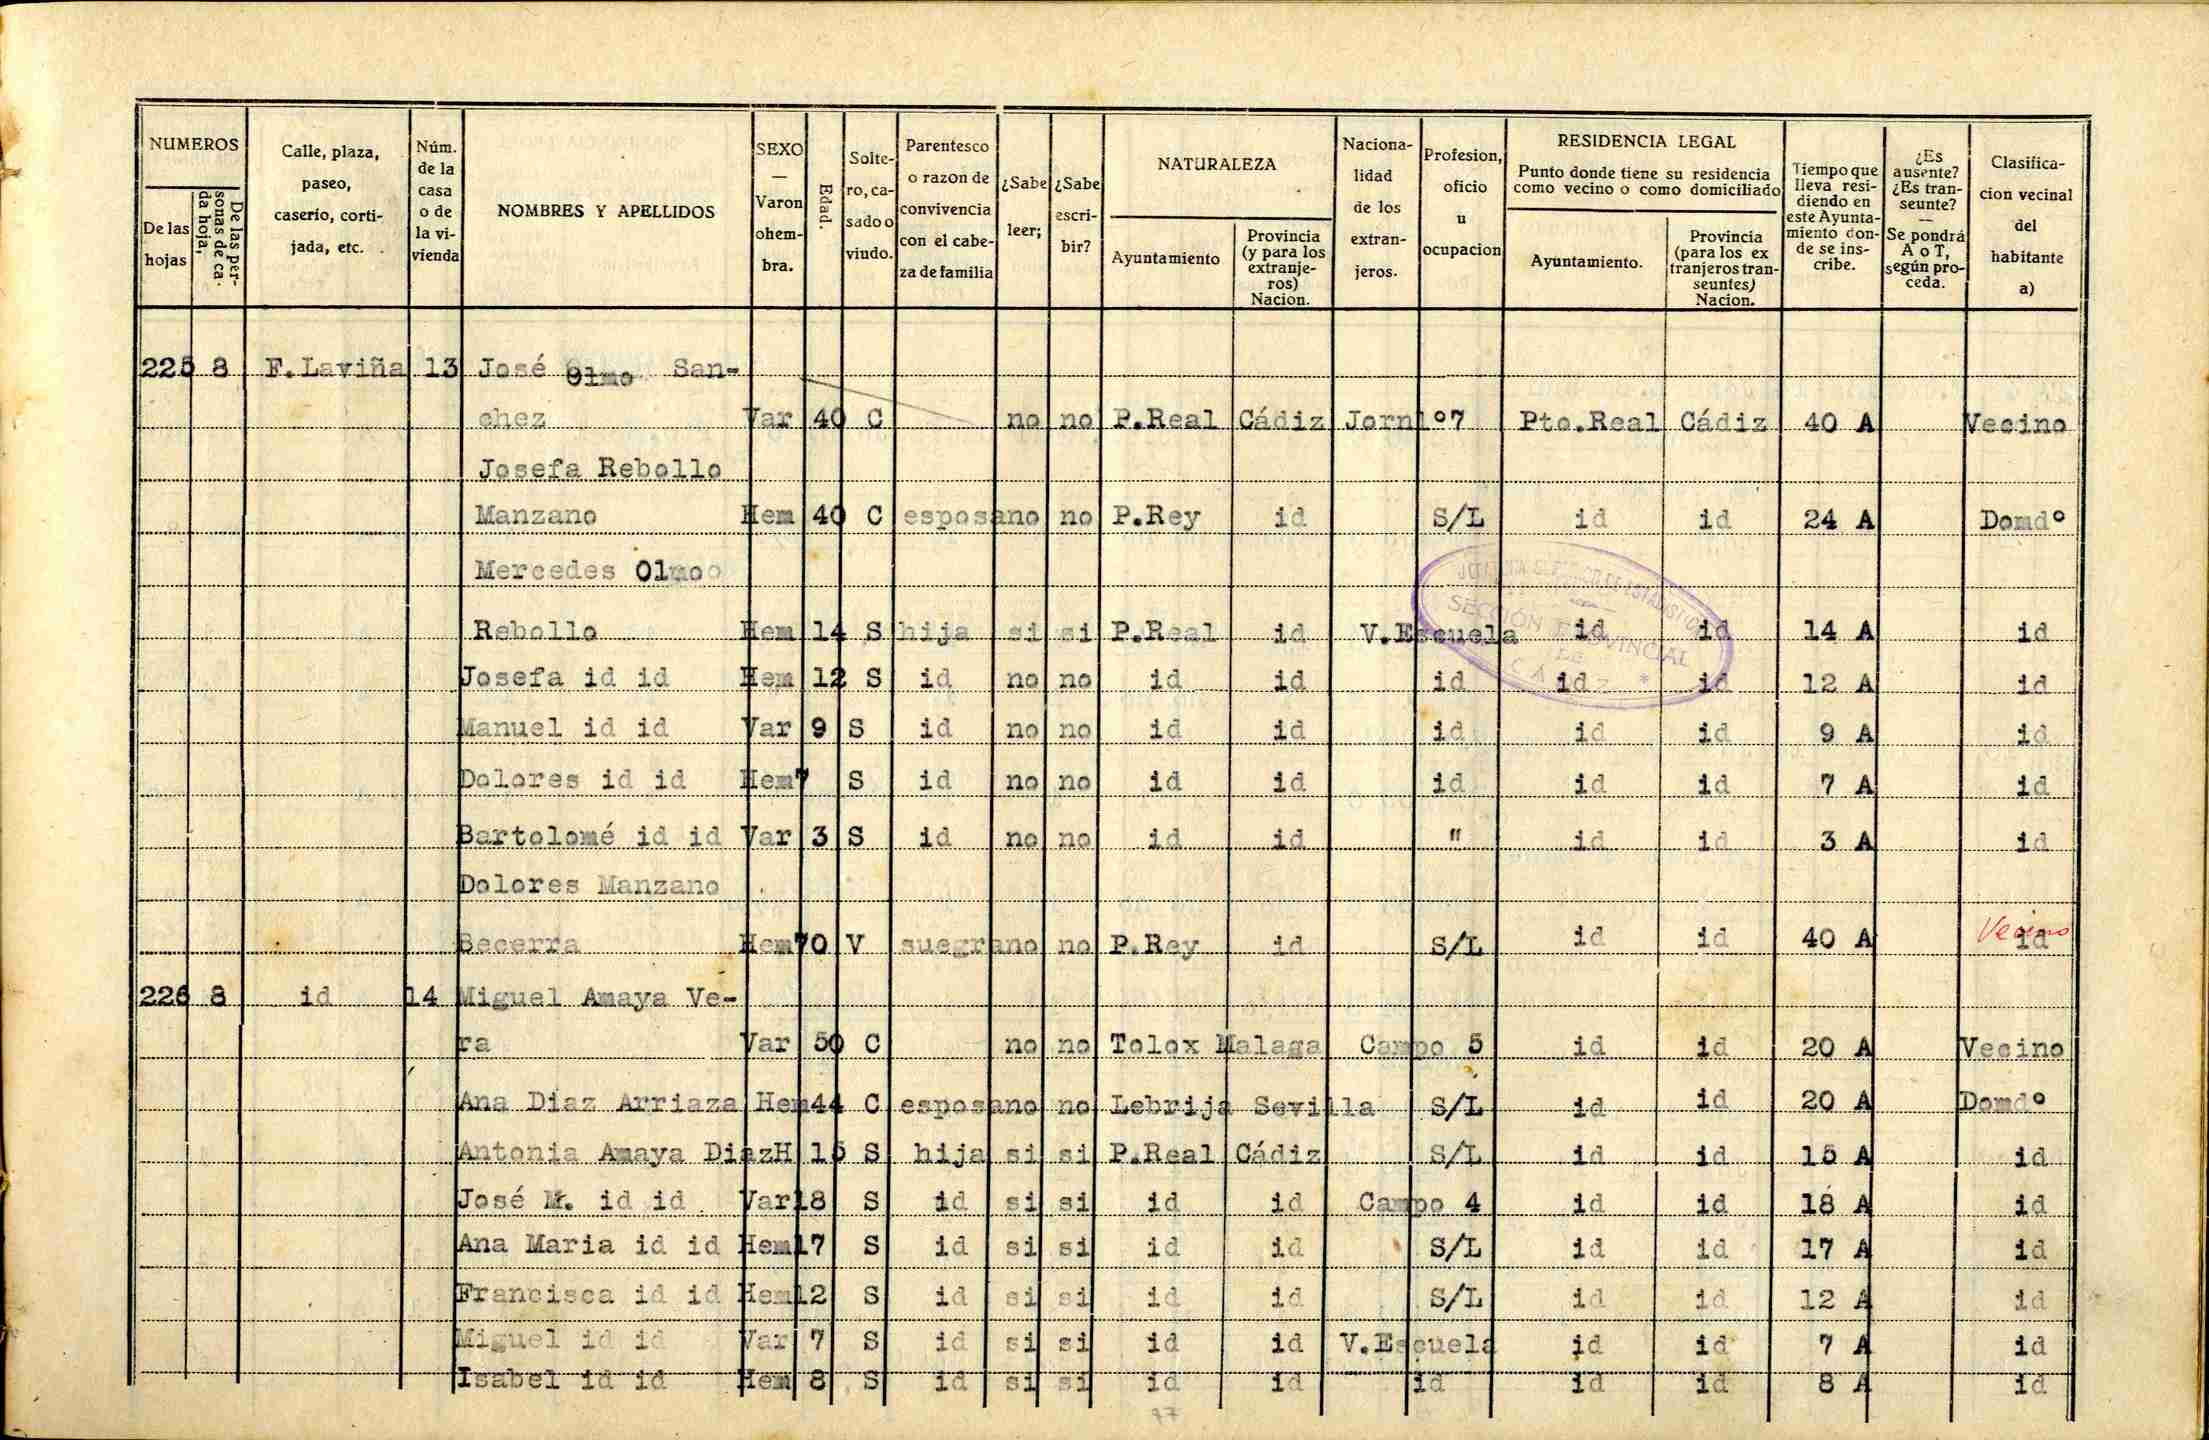 NUMEROS
De las hojas
De las personas de cada hoja,
Calle, plaza, paseo, caserio, cortijada, etc.
Núm. de la casa o de la vivienda
NOMBRES Y APELLIDOS
SEXO — Varon ohembra.
Edad.
Soltero, casado o viudo.
Parentesco o razon de convivencia con el cabeza de familia
¿Sabe leer;
¿Sabe escribir?
NATURALEZA
Ayuntamiento
Provincia (y para los extranjeros) Nacion.
Nacionalidad de los extranjeros.
Profesion, oficio u ocupacion
RESIDENCIA LEGAL
Punto donde tiene su residencia como vecino o como domiciliado
Ayuntamiento.
Provincia (para los extranjeros transeuntes) Nacion.
Tiempo que lleva residiendo en este Ayuntamiento donde se inscribe.
¿Es ausente? ¿Es transeunte? — Se pondrá A o T, según proceda.
Clasificacion vecinal del habitante a)
225 8 F.Laviña 13 José Olmo San-
chez Var 40 C no no P.Real Cádiz Jornlº7 Pto.Real Cádiz 40 A Vecino
Josefa Rebollo
Manzano Hem 40 C esposa no no P.Rey id S/L id id 24 A Domdº
Mercedes Olmo
Rebollo Hem 14 S hija si si P.Real id V.Escuela id id 14 A id
Josefa id id Hem 12 S id no no id id id id id 12 A id
Manuel id id Var 9 S id no no id id id id id 9 A id
Dolores id id Hem 7 S id no no id id id id id 7 A id
Bartolomé id id Var 3 S id no no id id " id id 3 A id
Dolores Manzano
Becerra Hem 70 V suegra no no P.Rey id S/L id id 40 A id Vecino
226 8 id 14 Miguel Amaya Ve-
ra Var 50 C no no Tolox Malaga Campo 5 id id 20 A Vecino
Ana Diaz Arriaza Hem 44 C esposa no no Lebrija Sevilla S/L id id 20 A Domdº
Antonia Amaya Diaz H 15 S hija si si P.Real Cádiz S/L id id 15 A id
José M. id id Var 18 S id si si id id Campo 4 id id 18 A id
Ana Maria id id Hem 17 S id si si id id S/L id id 17 A id
Francisca id id Hem 12 S id si si id id S/L id id 12 A id
Miguel id id Var 7 S id si si id id V.Escuela id id 7 A id
Isabel id id Hem 8 S id si si id id id id id 8 A id
SECCIÓN PROVINCIAL
DE
CADIZ *